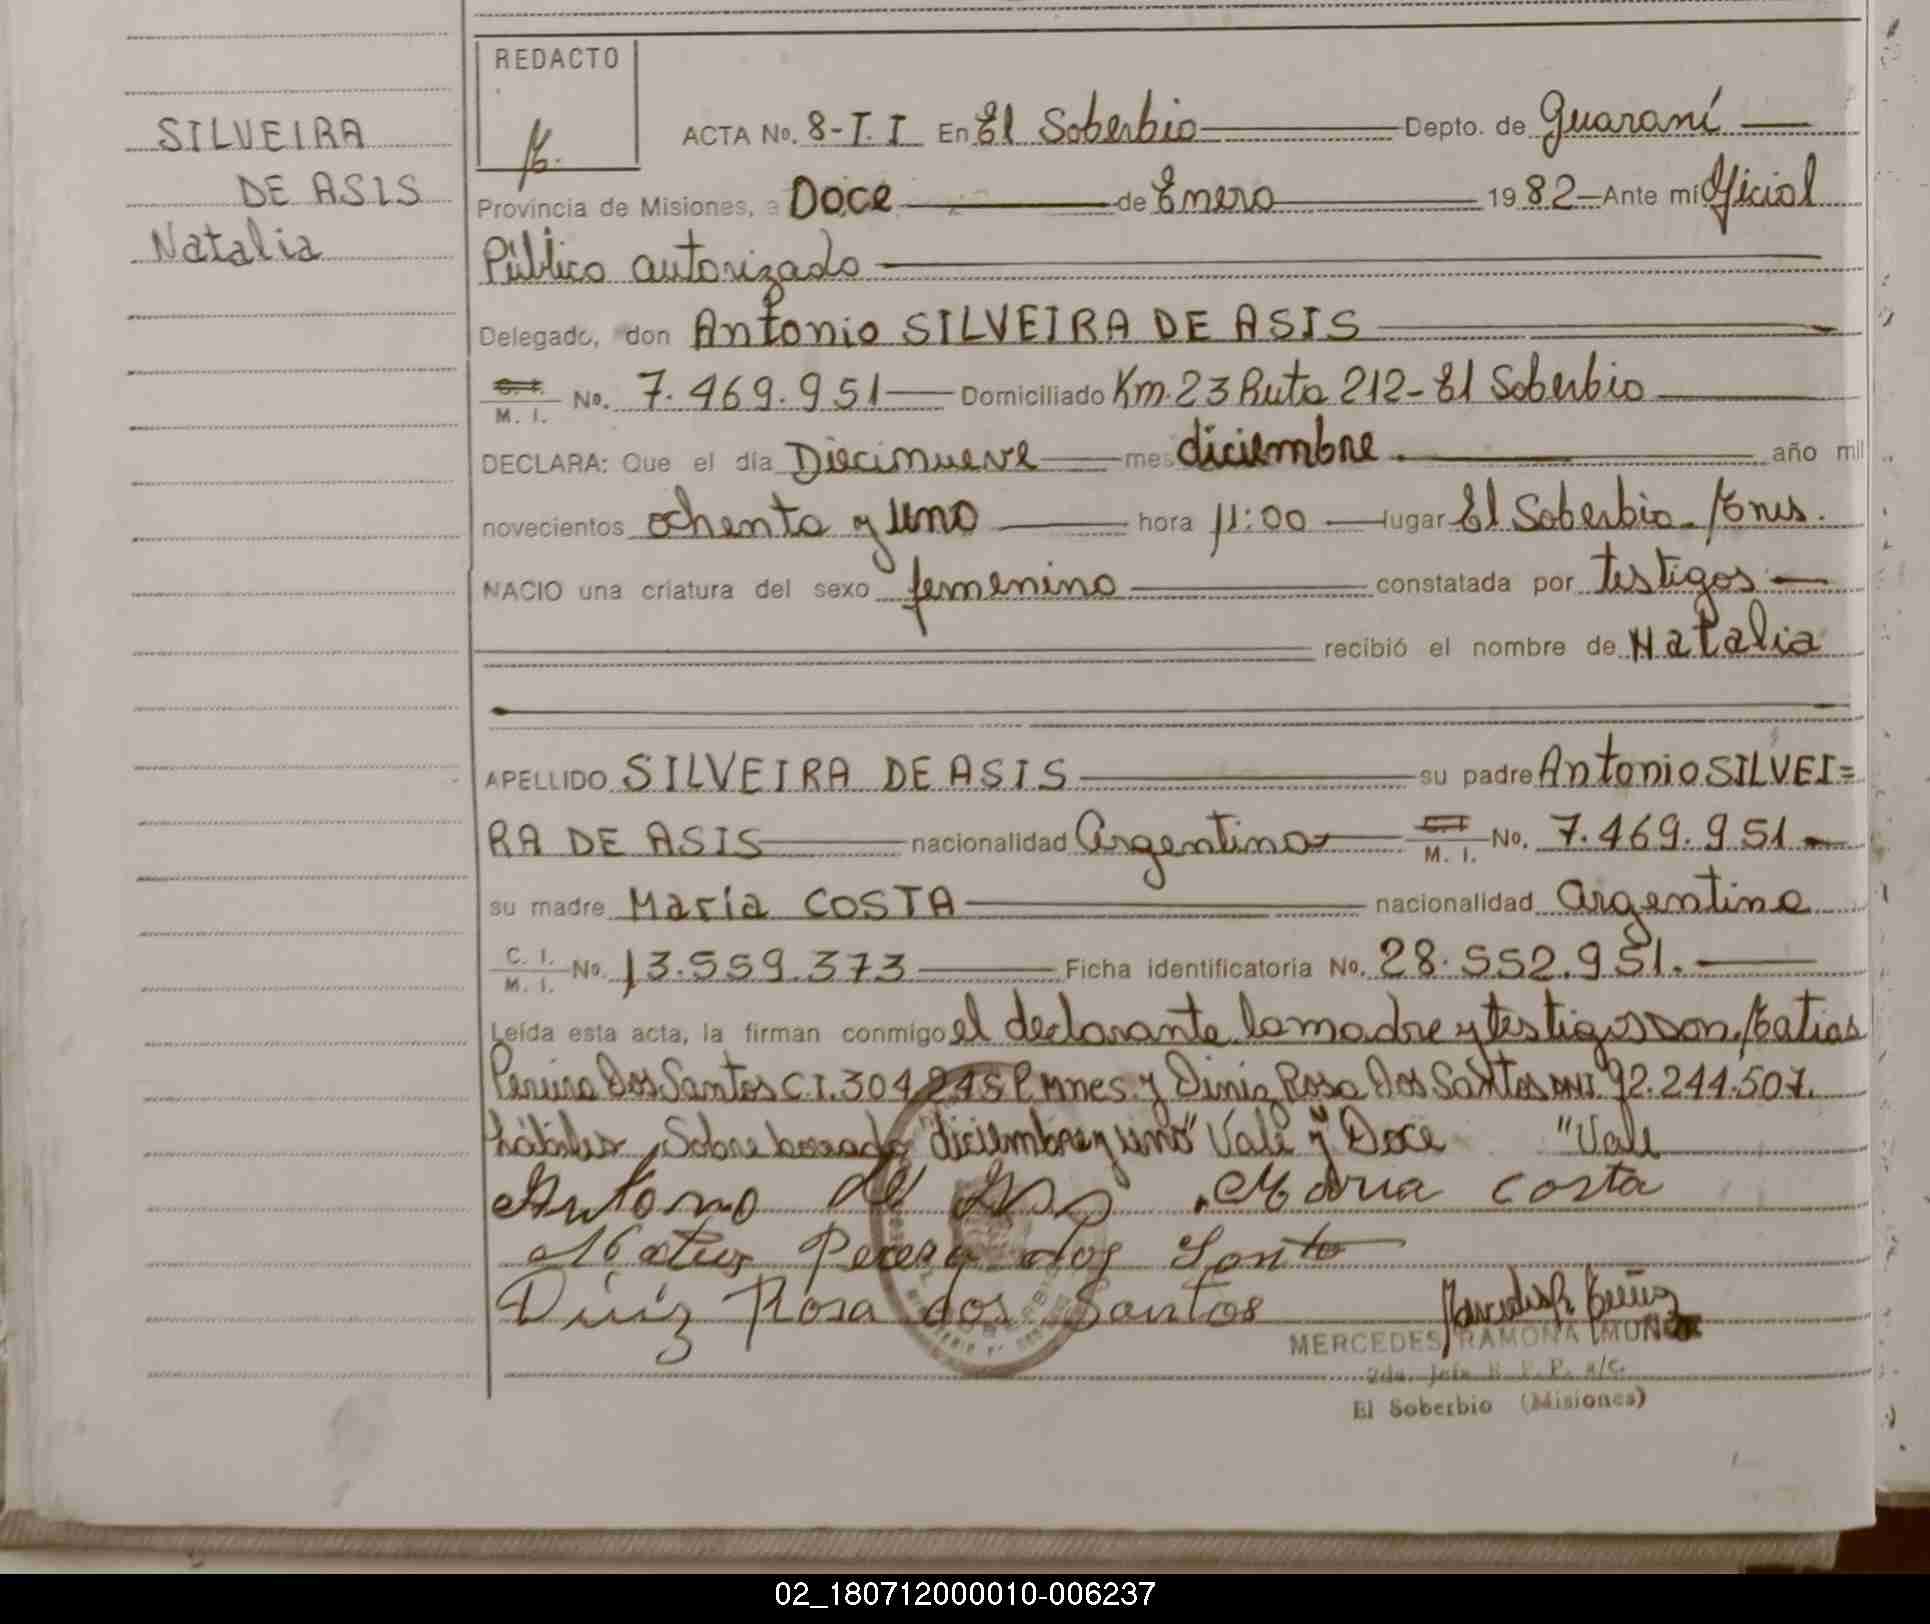 SILVEIRA
DE ASIS
Natalia
REDACTO
ACTA No. 8-T.I En El Soberbio Depto. de Guaraní
Provincia de Misiones, a Doce de Enero 1982 Ante mí Oficial
Público autorizado
Delegado, don Antonio SILVEIRA DE ASIS
C. I. / M. I. No. 7.469.951 Domiciliado Km. 23 Ruta 212 - El Soberbio
DECLARA: Que el día Diecinueve mes diciembre año mil
novecientos ochenta y uno hora 11:00 lugar El Soberbio - Mnes.
NACIO una criatura del sexo femenino constatada por testigos
recibió el nombre de Natalia
APELLIDO SILVEIRA DE ASIS su padre Antonio SILVEI=
RA DE ASIS nacionalidad Argentina C. I. / M. I. No. 7.469.951
su madre María COSTA nacionalidad Argentina
C. I. / M. I. No. 13.559.373 Ficha identificatoria No. 28.552.951.
Leída esta acta, la firman conmigo el declarante la madre y testigos son Matias
Pereira Dos Santos C.I. 304.245 P. Mnes. y Diniz Rosa Dos Santos DNI 92.244.507.
hábiles, Sobreborrado "diciembre y uno" Vale y Doce "Vale
Antonio de Asis Maria Costa
Matias Pereira dos Santo
Diniz Rosa dos Santos
MERCEDES RAMONA MUÑOZ
2da. Jefe R. P. P. a/c.
El Soberbio (Misiones)
02_180712000010-006237